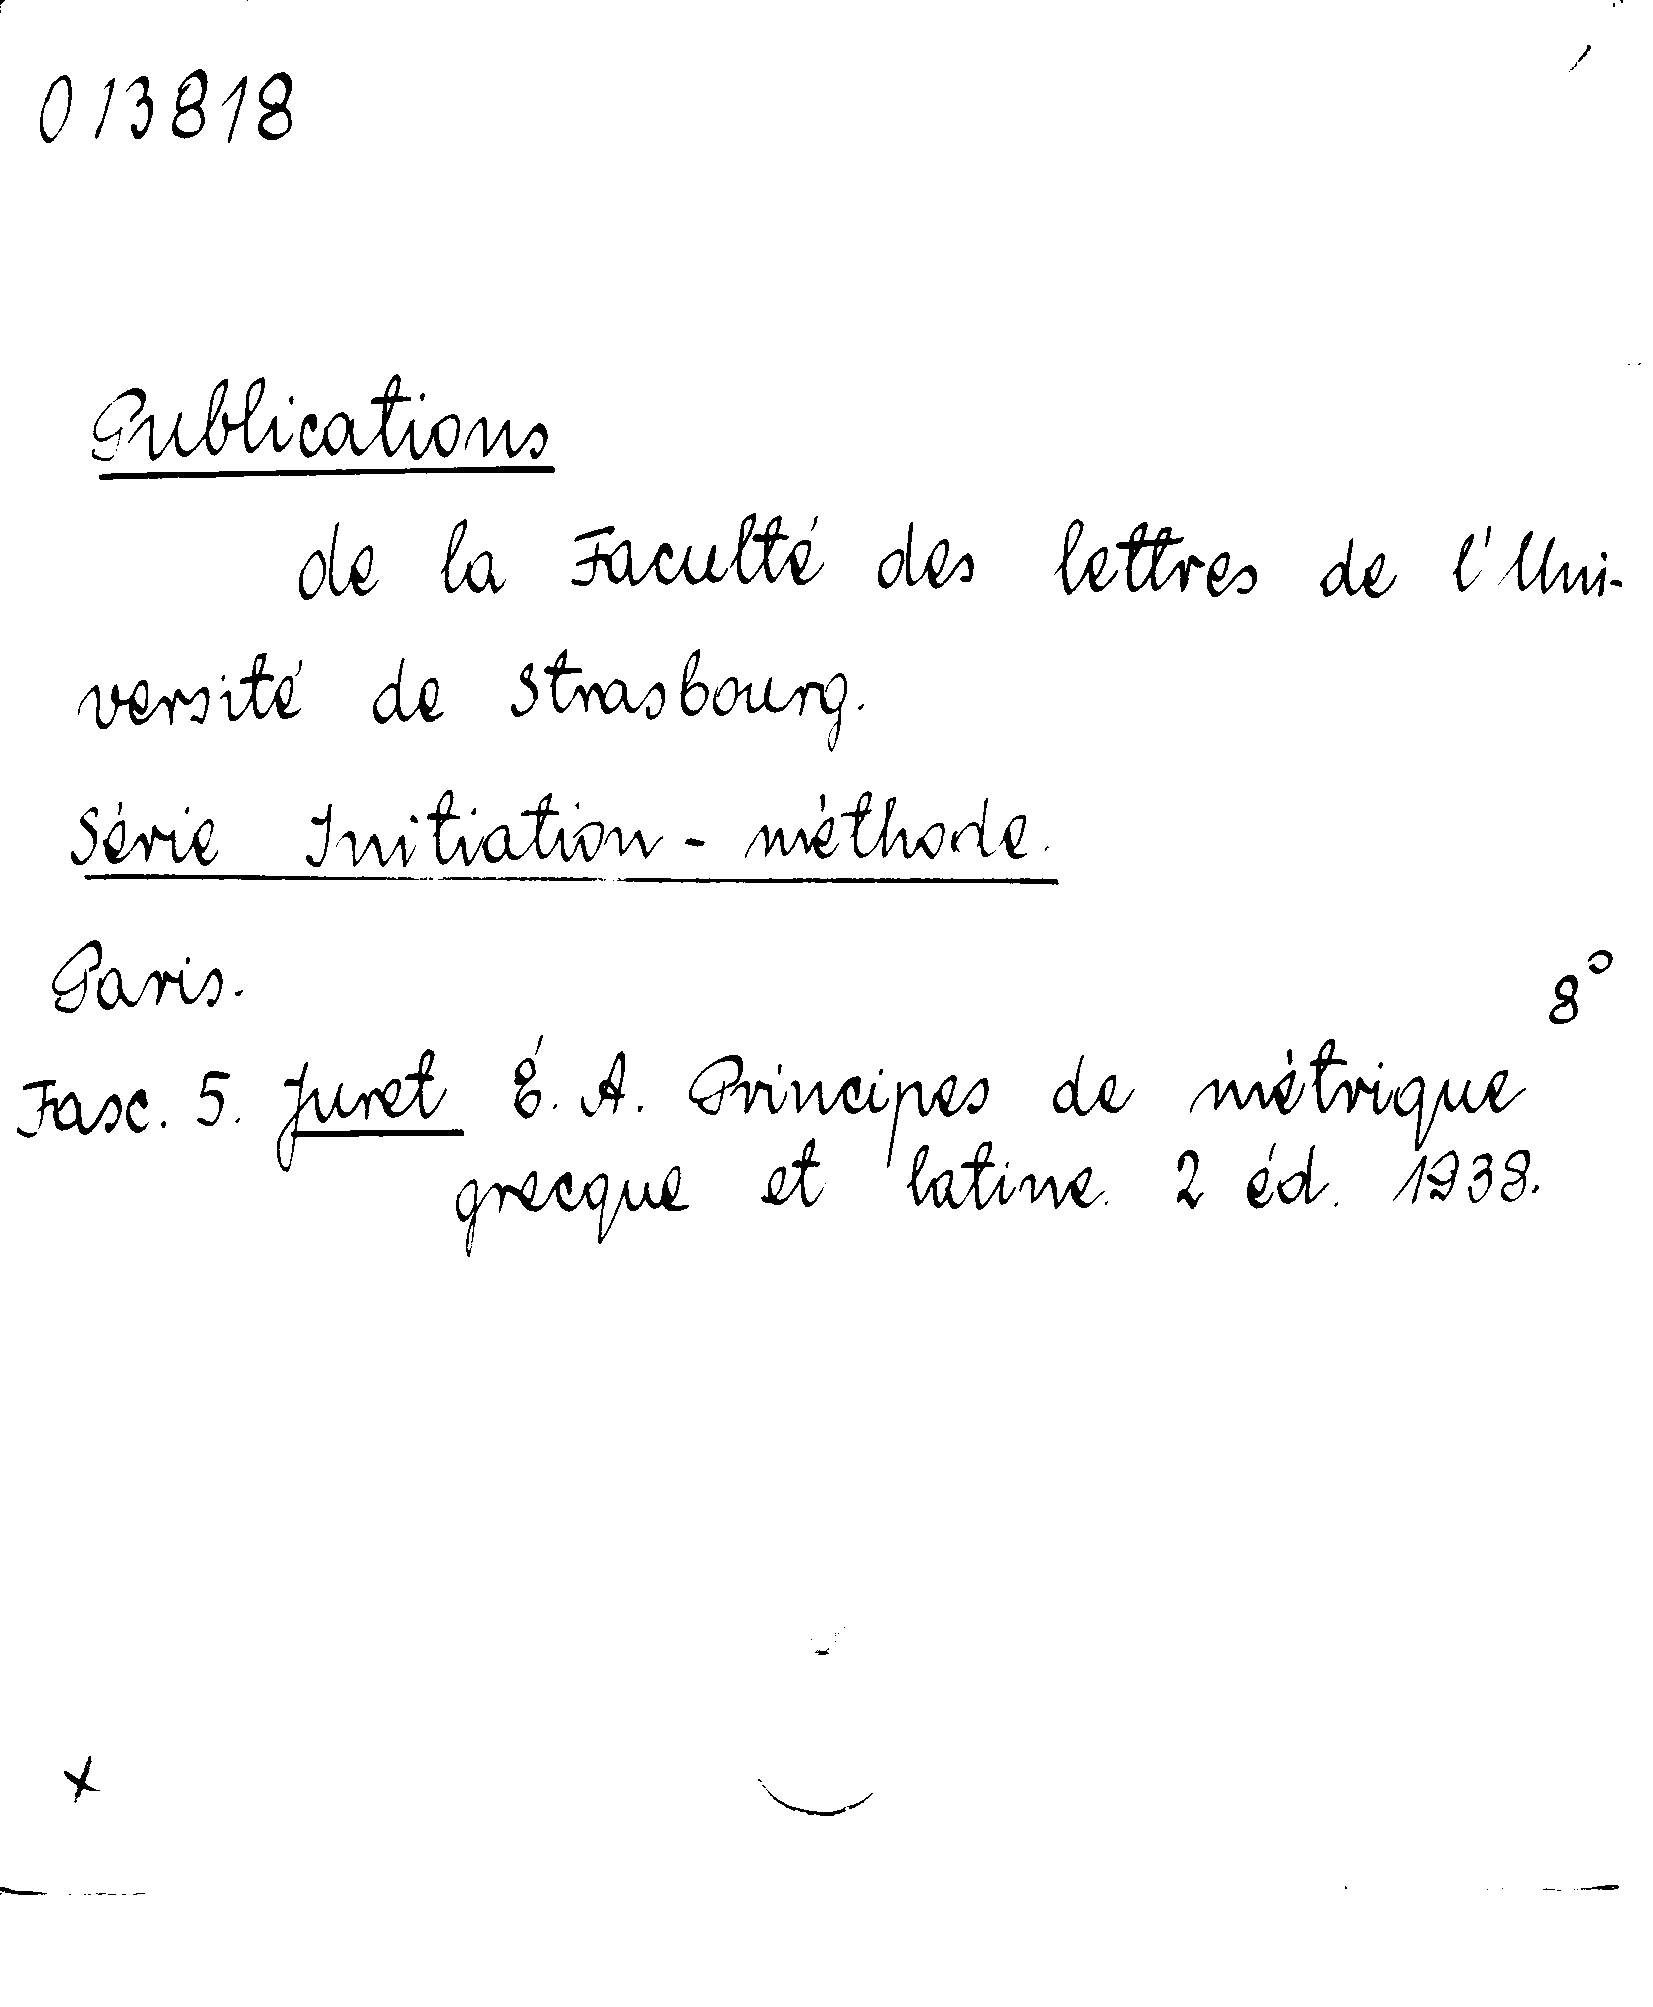 013818
Publications
de la Faculté des lettres de l'Uni-
versité de Strasbourg.
Série Initiation - méthode.
Paris. 8°
Fasc. 5. Juret É. A. Principes de métrique
grecque et latine. 2 éd. 1938.
x